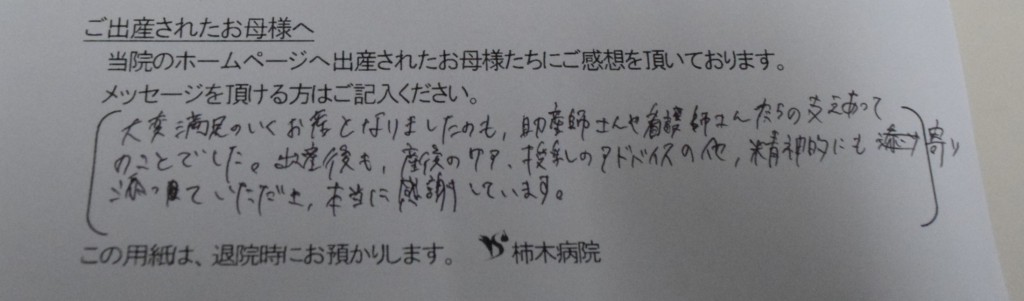 ご出産されたお母様へ
当院のホームページへ出産されたお母様たちにご感想を頂いております。
メッセージを頂ける方はご記入ください。
大変満足のいくお産となりましたのも、助産師さんや看護師さんたちの支えあって
のことでした。出産後も、産後のケア、授乳のアドバイスの他、精神的にも寄り
添っていただき、本当に感謝しています。
この用紙は、退院時にお預かりします。 柿木病院